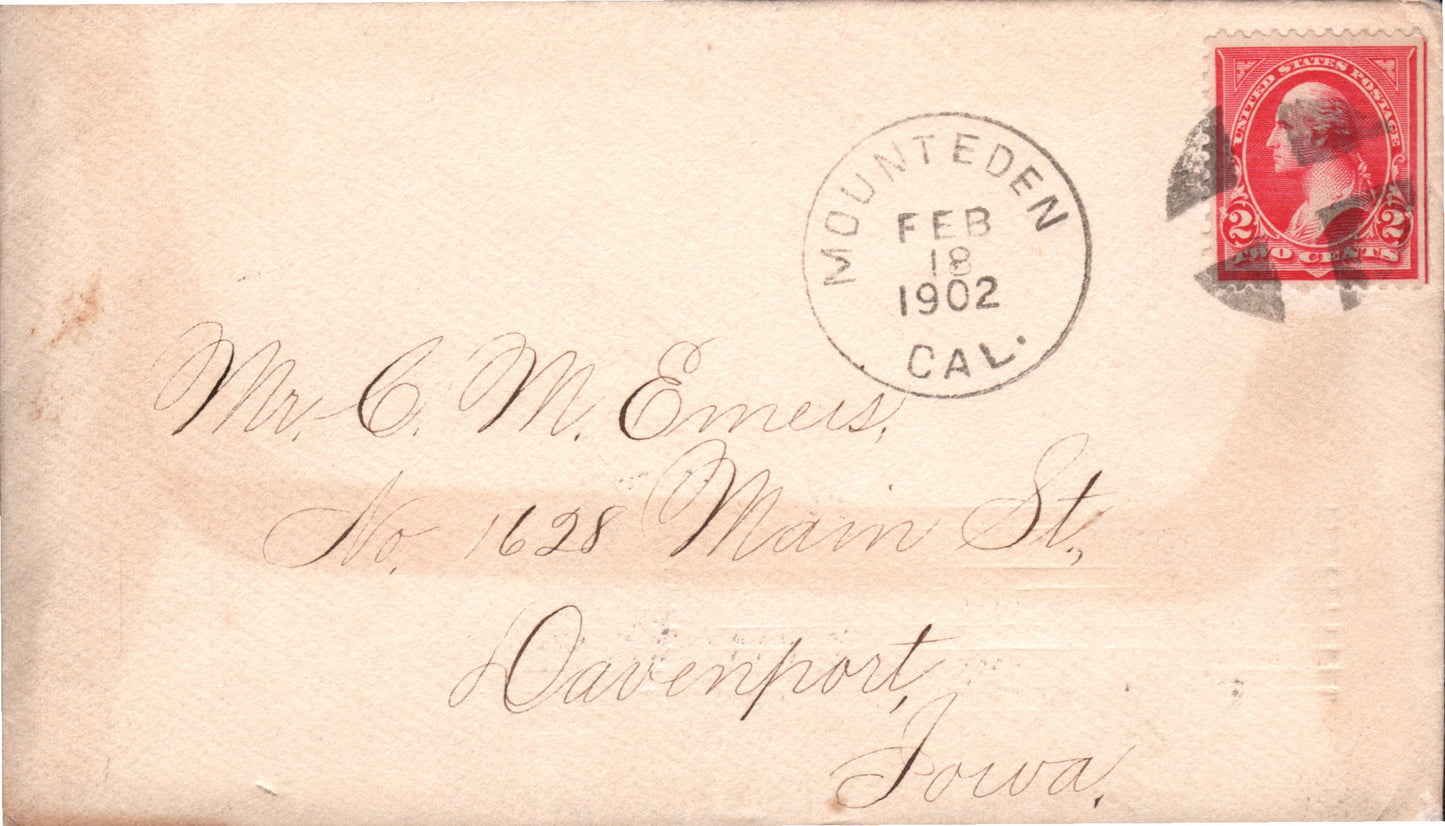 UNITED STATES POSTAGE
2 2
TWO CENTS
MOUNT EDEN
FEB
18
1902
CAL.
Mr. C. M. Emeis,
No. 1628 Main St.,
Davenport,
Iowa.